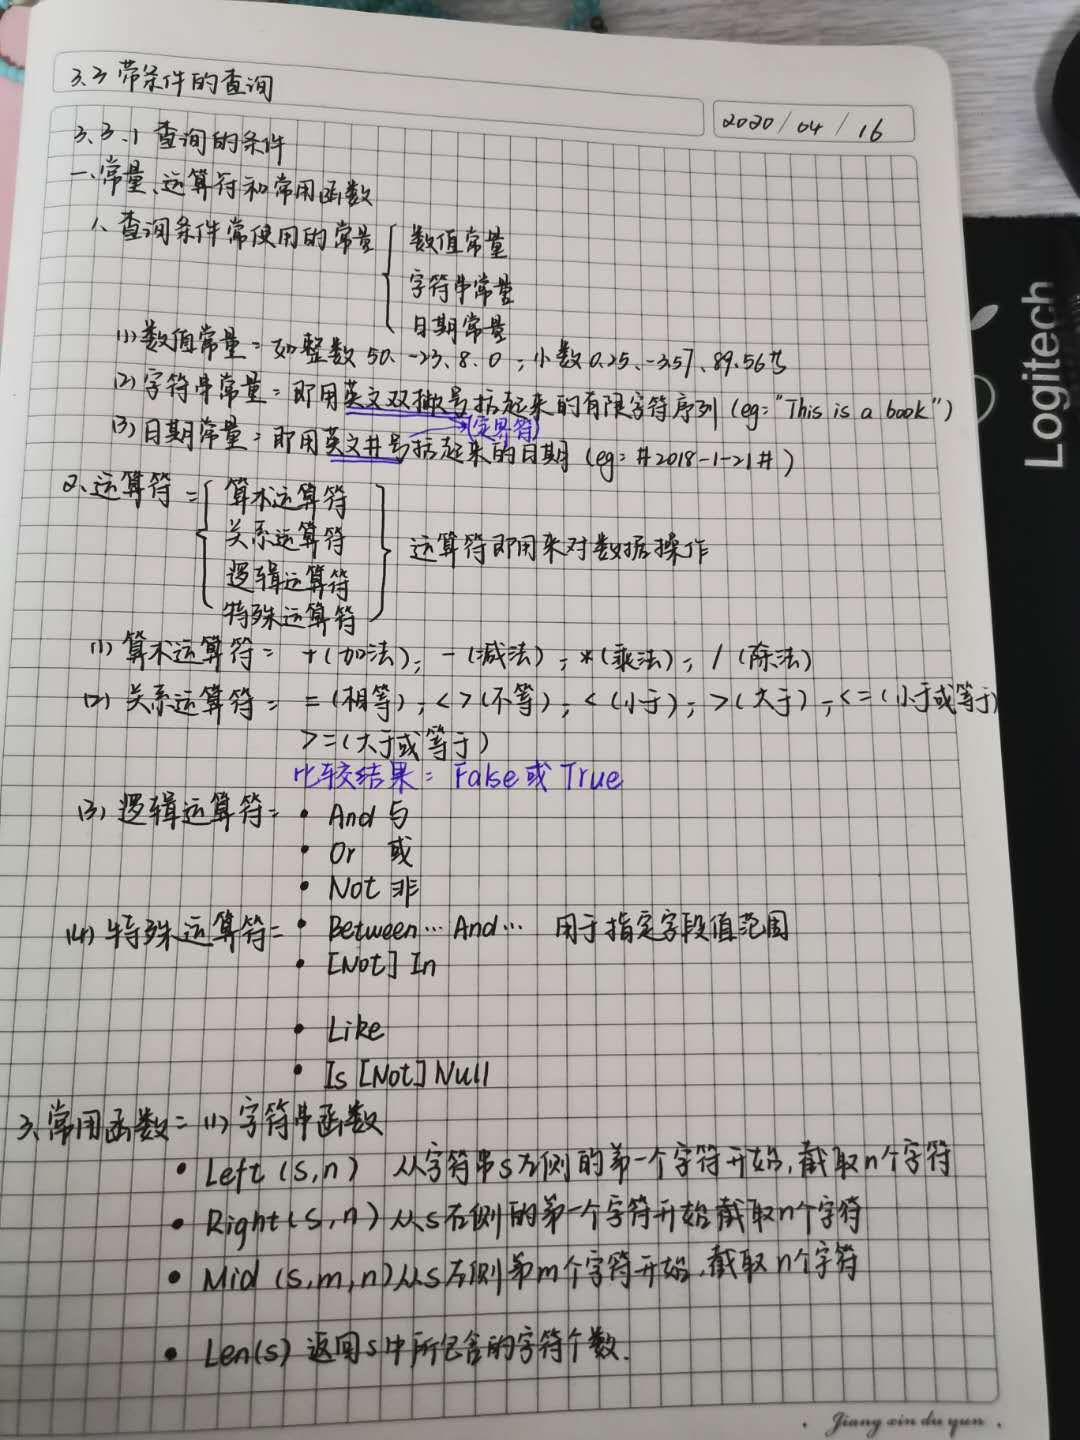 3.3 带条件的查询
2020/04/16
3.3.1 查询的条件
一、常量、运算符和常用函数
1、查询条件常使用的常量
数值常量
字符串常量
日期常量
(1) 数值常量:如整数50、-23、8、0;小数0.25、-3.57、89.56等
(2) 字符串常量:即用英文双撇号括起来的有限字符序列(eg:"This is a book")
(定界符)
(3) 日期常量:即用英文井号括起来的日期(eg:#2018-1-21#)
2、运算符:
算术运算符
关系运算符
逻辑运算符
特殊运算符
运算符即用来对数据操作
(1) 算术运算符: +(加法);-(减法);*(乘法);/(除法)
(2) 关系运算符: =(相等);<>(不等);<(小于);>(大于);<=(小于或等于)
>=(大于或等于)
比较结果:False或True
(3) 逻辑运算符: • And 与
• Or 或
• Not 非
(4) 特殊运算符: • Between…And… 用于指定字段值范围
• [Not] In
• Like
• Is [Not] Null
3、常用函数:(1) 字符串函数
• Left (s,n) 从字符串s左侧的第一个字符开始,截取n个字符
• Right(s,n) 从s右侧的第一个字符开始截取n个字符
• Mid (s,m,n) 从s左侧第m个字符开始,截取n个字符
• Len(s) 返回s中所包含的字符个数.
Jiang xin du yun
Logitech